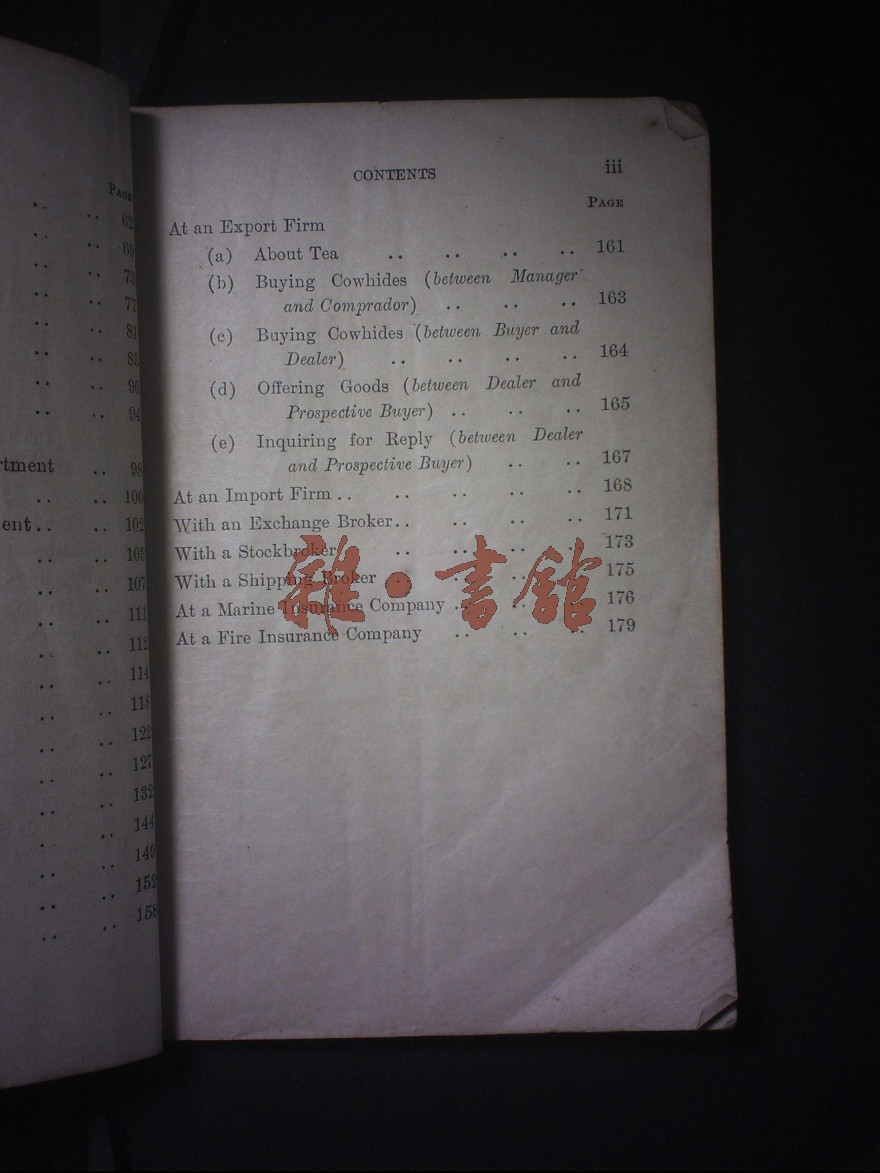 PAGE
62
69
73
77
81
83
90
94
rtment .. 98
.. .. 100
ent.. .. 102
.. .. 105
.. .. 107
.. .. 111
.. .. 112
.. .. 114
.. .. 118
.. .. 122
.. .. 127
.. .. 132
.. .. 144
.. .. 149
.. .. 152
.. .. 158
CONTENTS iii
PAGE
At an Export Firm
(a) About Tea .. .. .. .. 161
(b) Buying Cowhides (between Manager
and Comprador) .. .. .. 163
(c) Buying Cowhides (between Buyer and
Dealer) .. .. .. .. 164
(d) Offering Goods (between Dealer and
Prospective Buyer) .. .. .. 165
(e) Inquiring for Reply (between Dealer
and Prospective Buyer) .. .. 167
At an Import Firm .. .. .. .. .. 168
With an Exchange Broker.. .. .. .. 171
With a Stockbroker .. .. .. .. 173
With a Shipping Broker .. .. .. 175
At a Marine Insurance Company .. .. .. 176
At a Fire Insurance Company .. .. .. 179
雜·書館